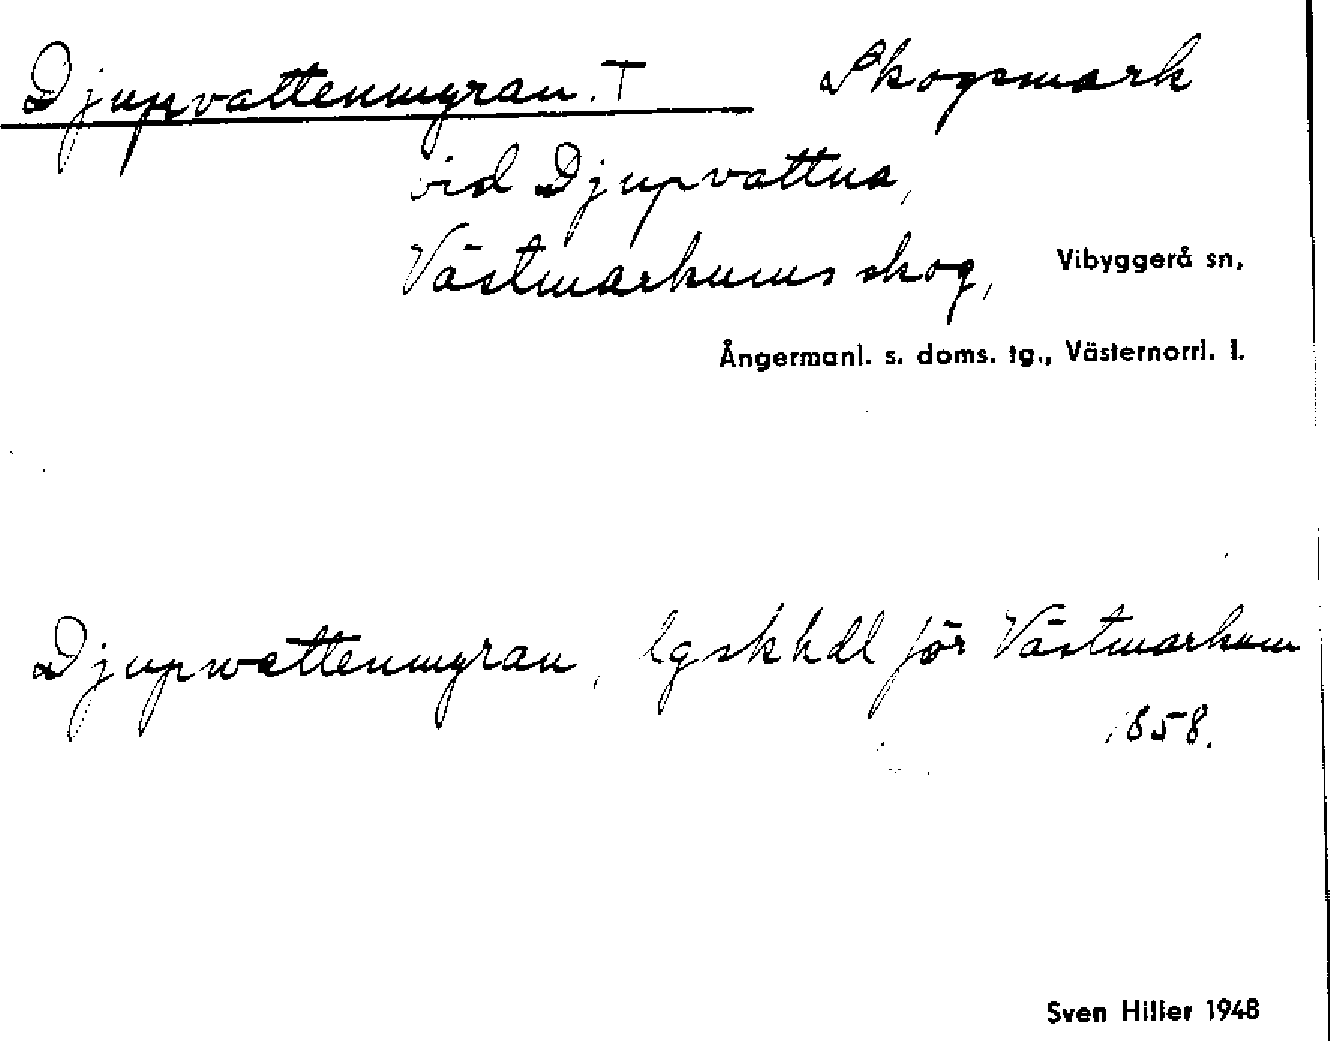 Djupvattenmyran. T Skogsmark
vid Djupvattna,
Västmarkums skog, Vibyggerå sn,
Ångermanl. s. doms. tg., Västernorrl. l.
Djupwattenmyran, lgskhdl för Västmarkum
1858.
Sven Hiller 1948